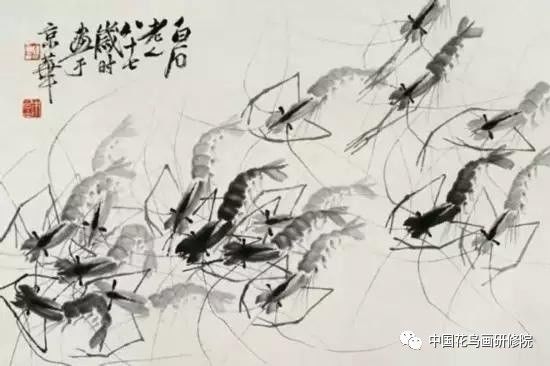 白石
老人
八十七
歲时
畫于
京華
中国花鸟画研修院